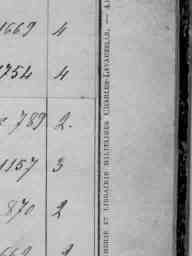 1669 4
1754 4
789 2.
1157 3
870 2
MERIE ET LIBRAIRIE MILITAIRES CHARLES-LAVAUZELLE. —